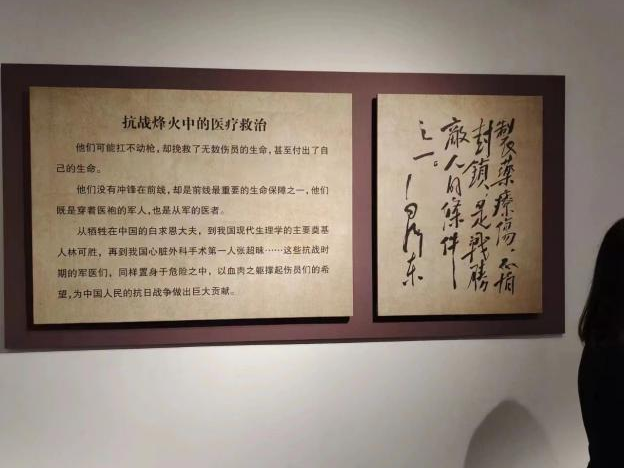 抗战烽火中的医疗救治
他们可能扛不动枪，却挽救了无数伤员的生命，甚至付出了自
己的生命。
他们没有冲锋在前线，却是前线最重要的生命保障之一，他们
既是穿着医袍的军人，也是从军的医者。
从牺牲在中国的白求恩大夫，到我国现代生理学的主要奠基
人林可胜，再到我国心脏外科手术第一人张超昧……这些抗战时
期的军医们，同样置身于危险之中，以血肉之躯撑起伤员们的希
望，为中国人民的抗日战争做出巨大贡献。
製藥療傷、不怕
封鎖、是戰勝
敵人的條件
之一。
毛澤東